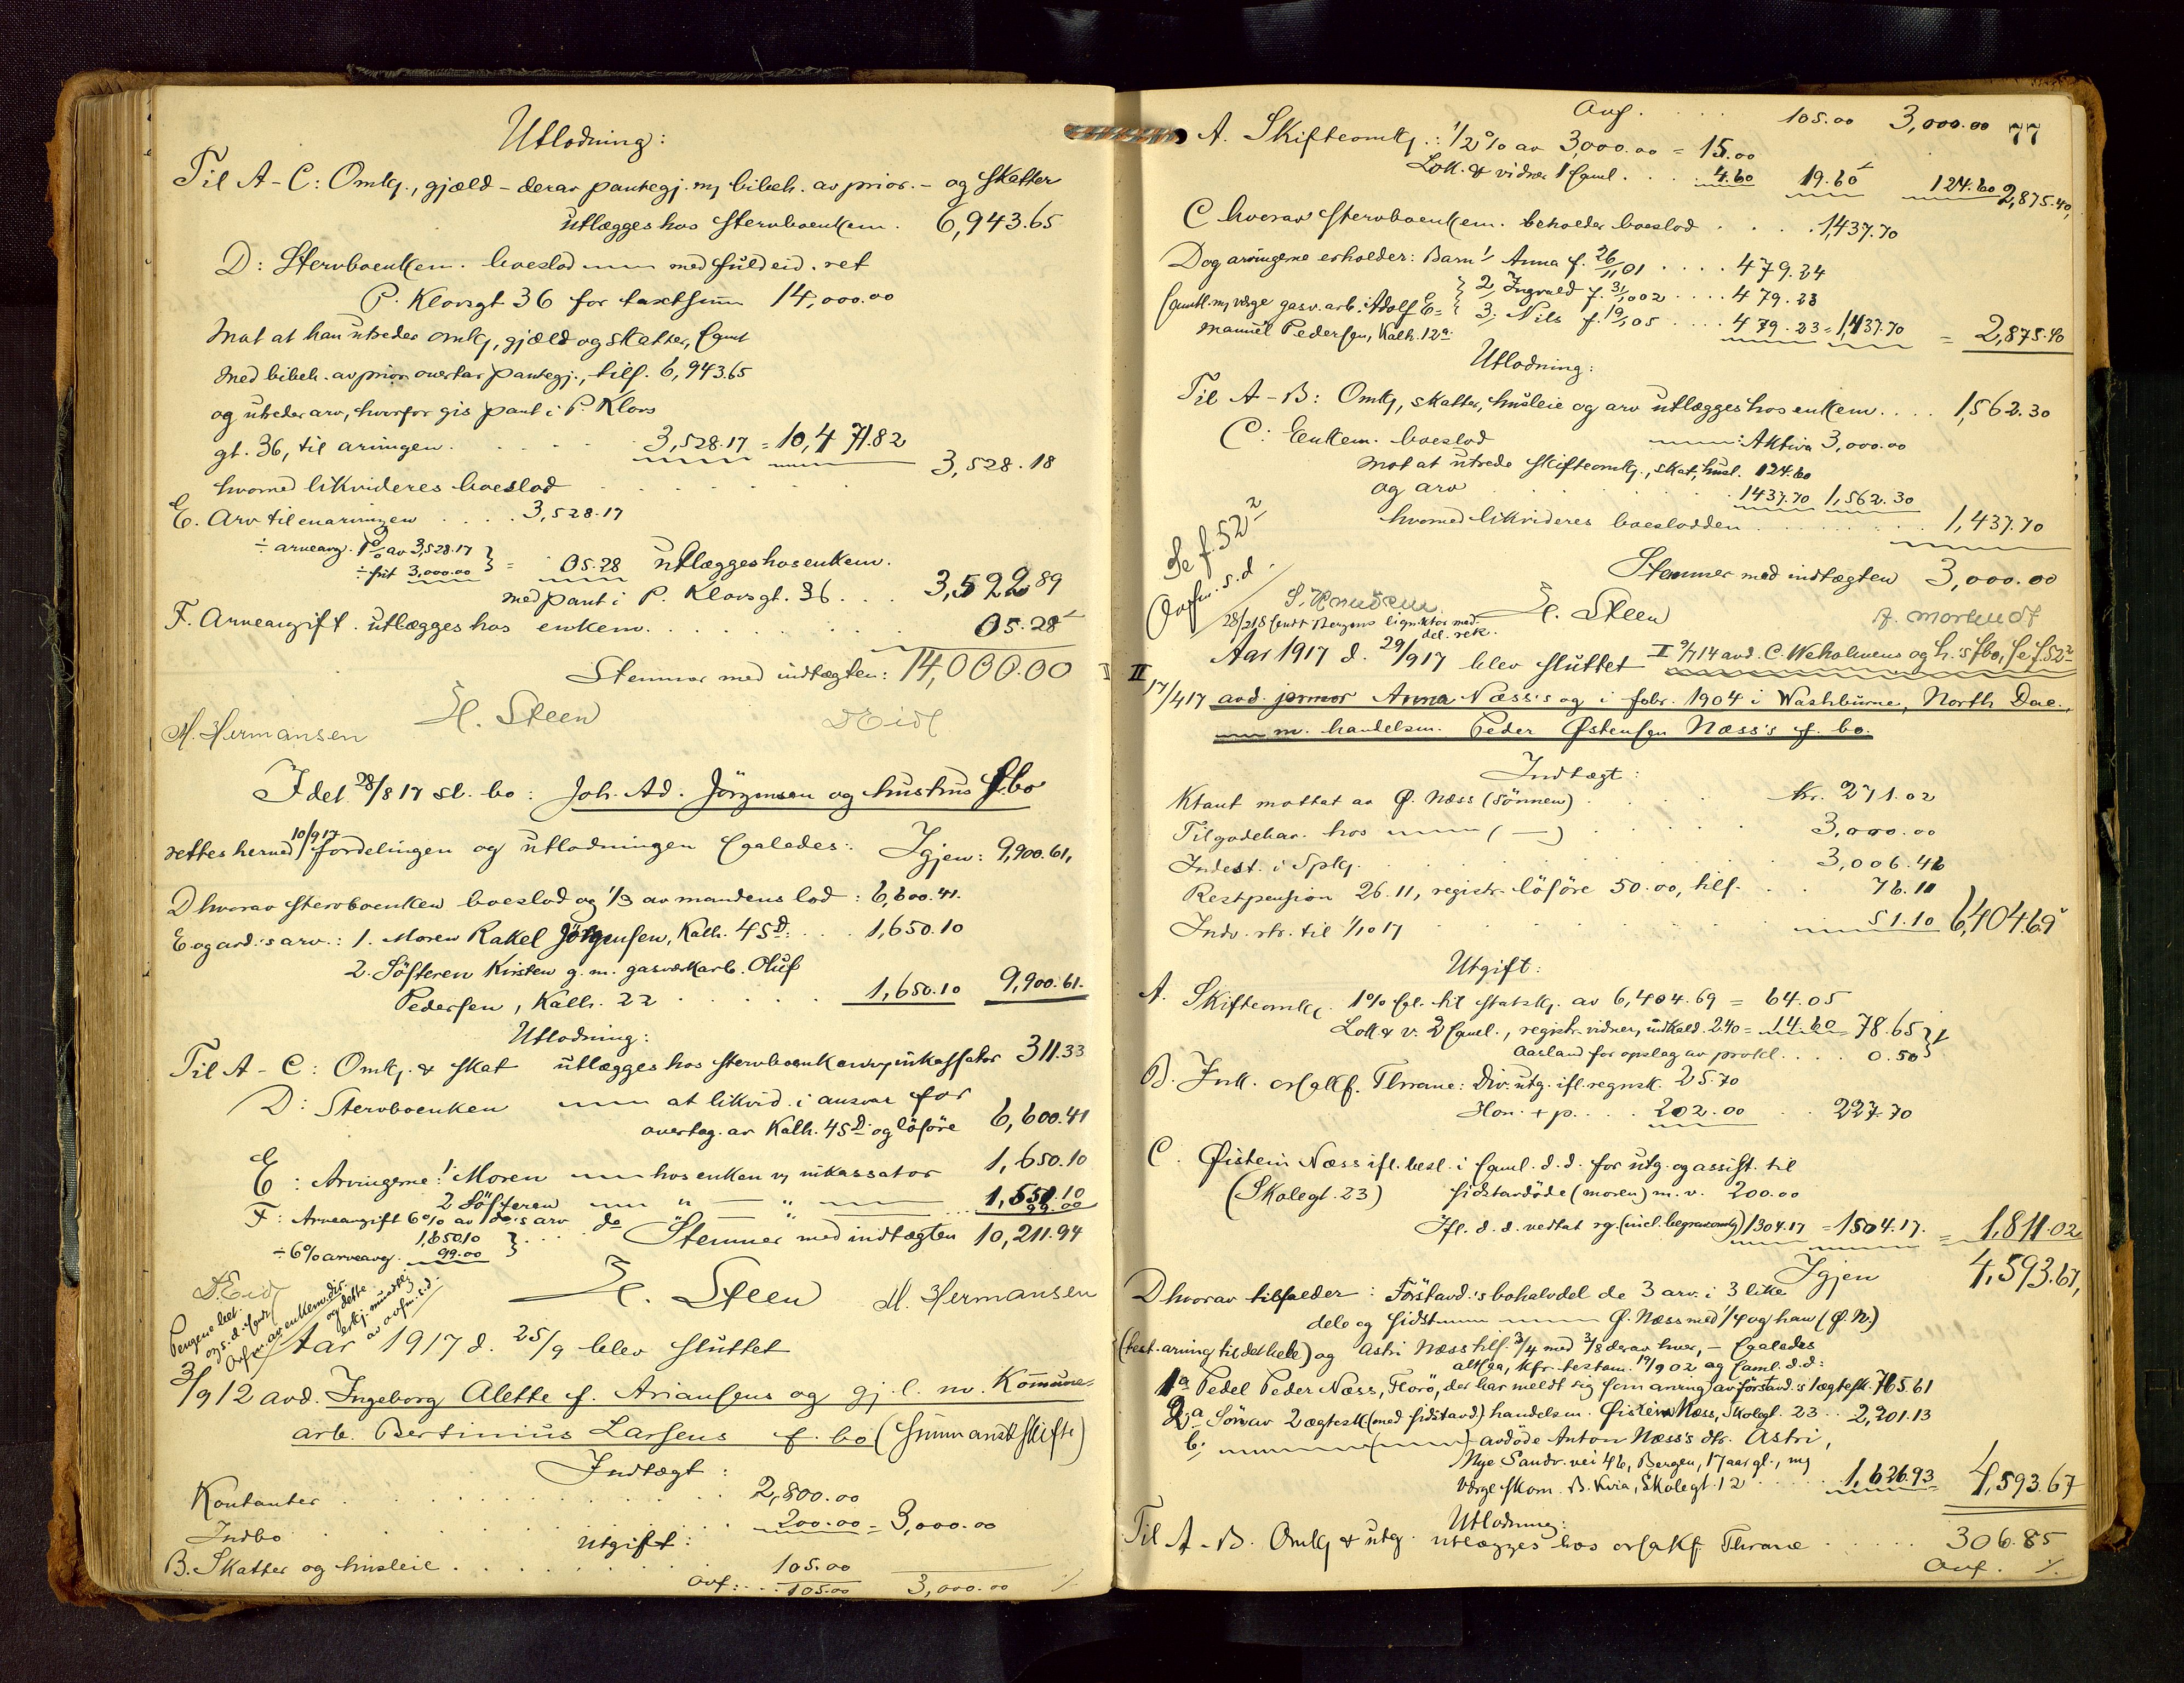 Utlodning:
Til A-C: Omkg., gjæld - derav pantegj. m/ bibeh. av prior. - og skatter
utlægges hos stervboenkem. 6,943.65
D: Stervboenkem. boeslod med fuld eid. ret
P. Klovsgt 36 for taxtsum 14,000.00
Mot at han utreder omkg, gjæld og skatter, samt
med bibeh. av prior. overtar pantegj., tils. 6,943.65
og utreder arv, hvorfor gis pant i P. Klovs
gt. 36, til arvingen. 3,528.17 = 10,471.82
hvormed likvideres boeslod 3,528.18
E. Arv til enarvingen .... 3,528.17
÷ arveavg. 1% av 3,528.17
÷ frit 3,000.00 } = 05.28 utlægges hos enkem.
med pant i P. Klovsgt. 36 ... 3,522.89
F. Arveavgift utlægges hos enkem. 05.28
Stemmer med indtægten: 14,000.00
M. Hermansen H. Steen D Eide
I det 28/8 17 sl. bo: Joh. Ad. Jörgensen og hustrus fbo
rettes herved 10/9 17 fordelingen og utlodningen saaledes: Igjen: 9,900.61,
D hvorav stervboenken boeslod og 1/3 av mandens lod: 6,600.41.
E og avd.'s arv.: 1. Moren Rakel Jörgensen, Kalh. 45D: ... 1,650.10
2. Sösteren Kirsten g. m. gasværkarb. Oluf
Pedersen, Kalh. 22 ..... 1,650.10 9,900.61.
Utlodning:
Til A-C: Omkg. & skat utlægges hos stervboenken v/ inkassator 311.33
D: Stervboenken at likvid. i ansvar for
overtag. av Kalh. 45D og lösöre 6,600.41
E: Arvingerne: 1. Moren hos enken v/ inkassator 1,650.10
2 Sösteren " — " 1,551.10
F: Arveavgift 6% av 1 do's arv do 99.00
1,650.10
÷ 6% arveavg. 99.00 } Stemmer med indtægten 10,211.94
D. Eide H. Steen M. Hermansen
Aar 1917 d. 25/9 blev sluttet
3/9 12 avd. Ingeborg Alette f. Ariansens og gj. l. m. Kommune-
arb. Bertinius Larsens f. bo (summarisk skifte)
Indtægt:
Kontanter 2,800.00
Indbo 200.00 = 3,000.00
Utgift:
B. Skatter og husleie 105.00
Ovf: ... 105.00 3,000.00 ./.
Ovf. .... 105.00 3,000.00 77
A. Skifteomkg.: 1/2% av 3,000.00 = 15.00
Lok. & vidner 1 saml. ... 4.60 19.60 124.60 2,875.40,
C hvorav stervboenkem. beholder boeslod .... 1,437.70
D og arvingerne erholder: Barn 1, Anna f. 26/11 01 .... 479.24
2, Ingvald f. 31/10 02 .... 479.23
samtl. m/ værge gasv. arb. Adolf E= 3, Nils f. 19/1 05 .... 479.23 = 1,437.70 = 2,875.40
manuel Pedersen, Kalh. 12a.
Utlodning:
Til A-B: Omkg, skatter, husleie og arv utlægges hos enkem.... 1,562.30
C: Enkem. boeslod : Aktiva 3,000.00
mot at utrede skifteomkg., skat, husl. 124.60
og arv 1437.70 1,562.30
hvormed likvideres boeslodden 1,437.70
Se f. 52 2
Stemmer med indtægten 3,000.00
H. Steen
Aar 1917 d. 29/9 17 blev sluttet I 9/7 14 avd. C. Weholmens og h.'s fbo, se f. 52 2
II 17/4 17 avd. jormor Anna Næss's og i febr. 1904 i Washburne, North Dac.,
m. handelsm. Peder Østensen Næss's f. bo.
Indtægt:
Ktant mottat av Ø. Næss (sönnen) kr. 271.02
Tilgodehav. hos ( — ) 3,000.00
Indest. i Spkg. 3,006.46
Restpension 26.11, registr. lösöre 50.00, tils. .. 76.11
Indv. rtr. til 1/10 17 51.10 6,404.69
Utgift:
A. Skifteomkg. 1% sl. til statsk. av 6,404.69 = 64.05
Lok & v. 2 saml., registr. vidner, indkald. 2.40 = 14.60 78.65
Aasland for opslag av prokl. ... 0.50
B. Ink. orsakf. Thrane: Div. utg. ifl. regnsk. 25.70
Hon. + p. ... 202.00 .. 227.70
C. Øistein Næss ifl. besl. i saml. d.d. for utg. og assist. til
(Skolegt. 23) sidstavdöde (moren) m. v. 200.00
Ifl. d. d. vedtat rg. (incl. begravomkg) 1304.17 = 1504.17. = 1,811.02
Igjen 4,593.67,
D hvorav tilfalder: Förstavd.'s bohalvdel de 3 arv. i 3 like
dele og sidst Ø. Næss med 1/4 og han (Ø. N.)
(test. arving til det hele) og Astri Næss tils. 3/4 med 3/8 derav hver, - saaledes
altsaa, kfr. testam. 19/9 02 og saml. d.d.:
1a Pedel Peder Næss, Florö, der har meldt sig som arving av förstavd.'s 1 ægtesk. 765.61
2.a Sön av 2 ægtesk (med sidstavd) handelsm. Øistein Næss, Skolegt. 23 .. 2,201.13
b. ( ) avdöde Anton Næss's dtr. Astri,
Nye Sandv. vei 46, Bergen, 17 aar gl., m/
værge skom. B. Kvia, Skolegt. 12 .... 1,626.93 4,593.67
Utlodning:
Til A-B. Omkg & utg. utlægges hos orsakf. Thrane ..... 306.85
Ovf. ./.